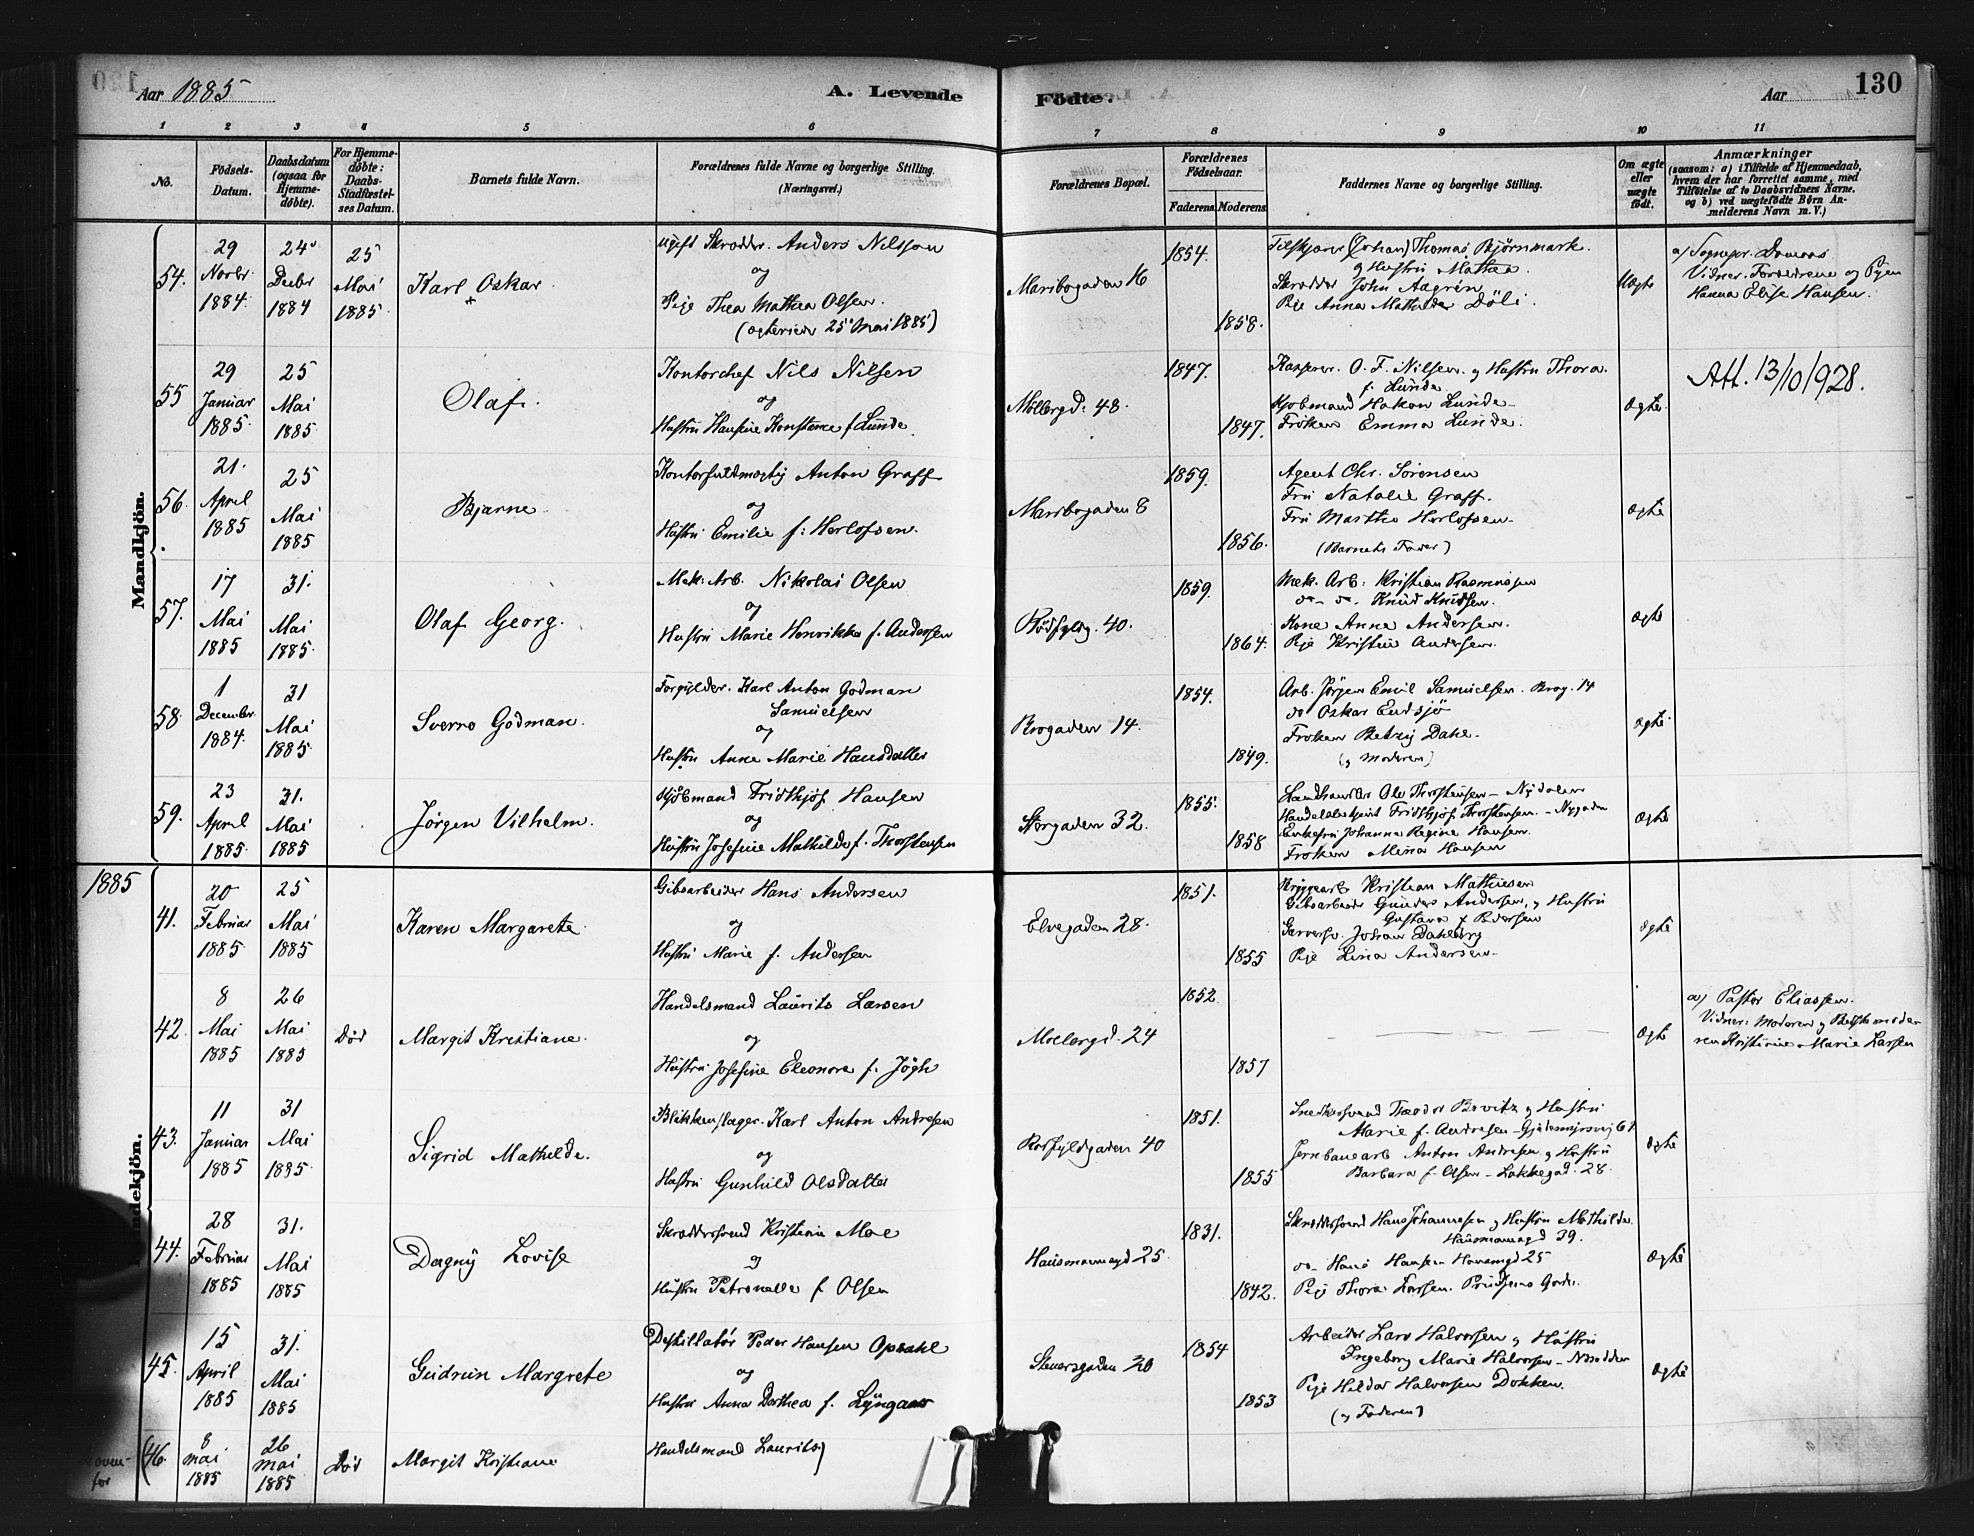 Aar 1885
A. Levende
Fødte.
Aar
130
1 2 3 4 5 6 7 8 9 10 11
No.
Fødsels-
Datum.
Daabsdatum
(ogsaa for
Hjemme-
døbte).
For Hjemme-
døbte:
Daabs-
Stadfæstel-
ses Datum.
Barnets fulde Navn.
Forældrenes fulde Navne og borgerlige Stilling.
(Næringsvei.)
Forældrenes Bopæl.
Forældrenes
Fødselsaar.
Faderens. Moderens.
Faddernes Navne og borgerlige Stilling.
Om ægte
eller
uægte
født.
Anmærkninger
(saasom: a) i Tilfælde af Hjemmedaab,
hvem der har forrettet samme, med
Tilføielse af to Daabsvidners Navne.
og b) ved uægtefødte Børn An-
melderens Navn m. V.)
Mandkjøn.
54.
29
Novbr.
1884.
24
Decbr
1884
25
Mai
1885.
Karl Oskar
ugift Skrædder. Anders Nilsson
og
Pige Thea Mathea Olsen.
(ægteviede 25 Mai 1885)
Maribogaden 16
1854.
1858.
(Johan) Thomas Bjørnmark.
og Hustru Mathea.
Skrædder John Aagrén
Pige Anna Mathilde Döli.
Uægte
a) Sognepr.
Vidner. Forældrene og Pigen
Hanna Elise Hansen.
55
29
Januar
1885.
25
Mai
1885.
Olaf.
Kontorchef Nils Nilsen
og
Hustru Hansine Konstance f. Lunde.
Møllergd. 48.
1847.
1847.
Kasserer. O. F. Nilsen. og Hustru Thora.
f. Lunde.
Kjøbmand Hakon Lunde
Frøken Emma Lunde.
Ægte
Att. 13/10/928.
56.
21.
April
1885
25
Mai
1885
Bjarne
Kontorfuldmægtig Anton Graff
og
Hustru Emilie f: Herlofsen.
Maribogaden 8
1859.
1856.
Agent Chr. Sørensen
Fru Natalie Graff.
Fru Marthe Herlofsen
(Barnets Fader)
Ægte
57.
17
Mai
1885
31.
Mai
1885.
Olaf Georg.
Mek: Arb. Nikolai Olsen
og
Hustru Marie Henrikke f. Andersen
Rødfyldg. 40.
1859.
1864.
Mek. Arb: Kristian Rasmussen
do - do. Knud Knudsen.
Kone Anne Andersen.
Pige Kristine Andersen.
Ægte
58.
1
December
1884.
31
Mai
1885.
Sverre Godman.
Forgylder. Karl Anton Godman
Samuelsen
og
Hustru Anne Marie Hansdatter
Brogaden 14.
1854.
1849.
Arb. Jørgen Emil Samuelsen. Brog. 14
do Oskar Endsjø
Frøken Betzy Dahl
(og Moderen)
Ægte
59.
23
April
1885.
31.
Mai
1885
Jørgen Vilhelm.
Kjøbmand Fridthjof Hansen
og
Hustru Josefine Mathilde f. Thorstensen
Storgaden 32.
1855.
1858
Ole Thorstensen - Nydalen
Fridthjof Thorstensen. - Nygaden
Enkefru Johanne Regine Hansen.
Frøken Mina Hansen
Ægte
1885
Kvindekjøn.
41.
20
Februar
1885
25
Mai
1885
Karen Margarete
Gibsarbeider Hans Andersen
og
Hustru Marie f. Andersen
Elvegaden 28.
1851.
1855
Bryggearb Kristian Mathiesen
Gibsarbeide Gunder Andersen, og Hustru
Gustava f. Pedersen
Garversv. Johan Dahlberg
Pige Lina Andersen
Ægte
42.
8
Mai
1885
26
Mai
1885
Død
Margit Kristiane.
Handelsmand Laurits Larsen
og
Hustru Josefine Eleonore f. Jögh
Møllergd. 24
1852
1857
Ægte
a) Pastor Eliassen.
Vidner: Moderen og Bedstemode-
ren Kristine Marie Larsen
43.
11
Januar
1885
31
Mai
1885.
Sigrid Mathilde.
Blikkenslager. Karl Anton Andresen
og
Hustru Gunhild Olsdatter
Rødfyldgaden 40
1851.
1855
Snedkersvend Theodor Bewitz og Hustru
Marie f. Andresen - 61
Jernbanearb Anton Andresen og Hustru
Barbara f. Olsen - Lakkegad. 28.
Ægte
44.
28
Februar
1885
31.
Mai
1885
Dagny Lovise
Skræddersvend Kristian Moe
og
Hustru Petronelle f Olsen
Hausmannsgd 25
1831.
1842.
Skræddersvend Hans Johannesen og Hustru Mathilde
Hausmannsgd 39.
do Hans Hansen Hausmgd 25
Pige Thora Larsen.
Ægte
45.
15
April
1885
31.
Mai
1885
Gudrun Margrete
Destillatør Peder Hansen Opsahl
og
Hustru Anna Dorthea f. Lyngaas
Steensgaden 20
1854
1853
Arbeider Lars Halvorsen og Hustru
Ingeborg Marie Halvorsen - Nesodden
Pige Hilda Halvorsen Dokken.
(og Faderen)
Ægte
for
(46.
8
mai
1885
26
mai
1885
Død
Margit Kristiane
Handelsmand Laurits)